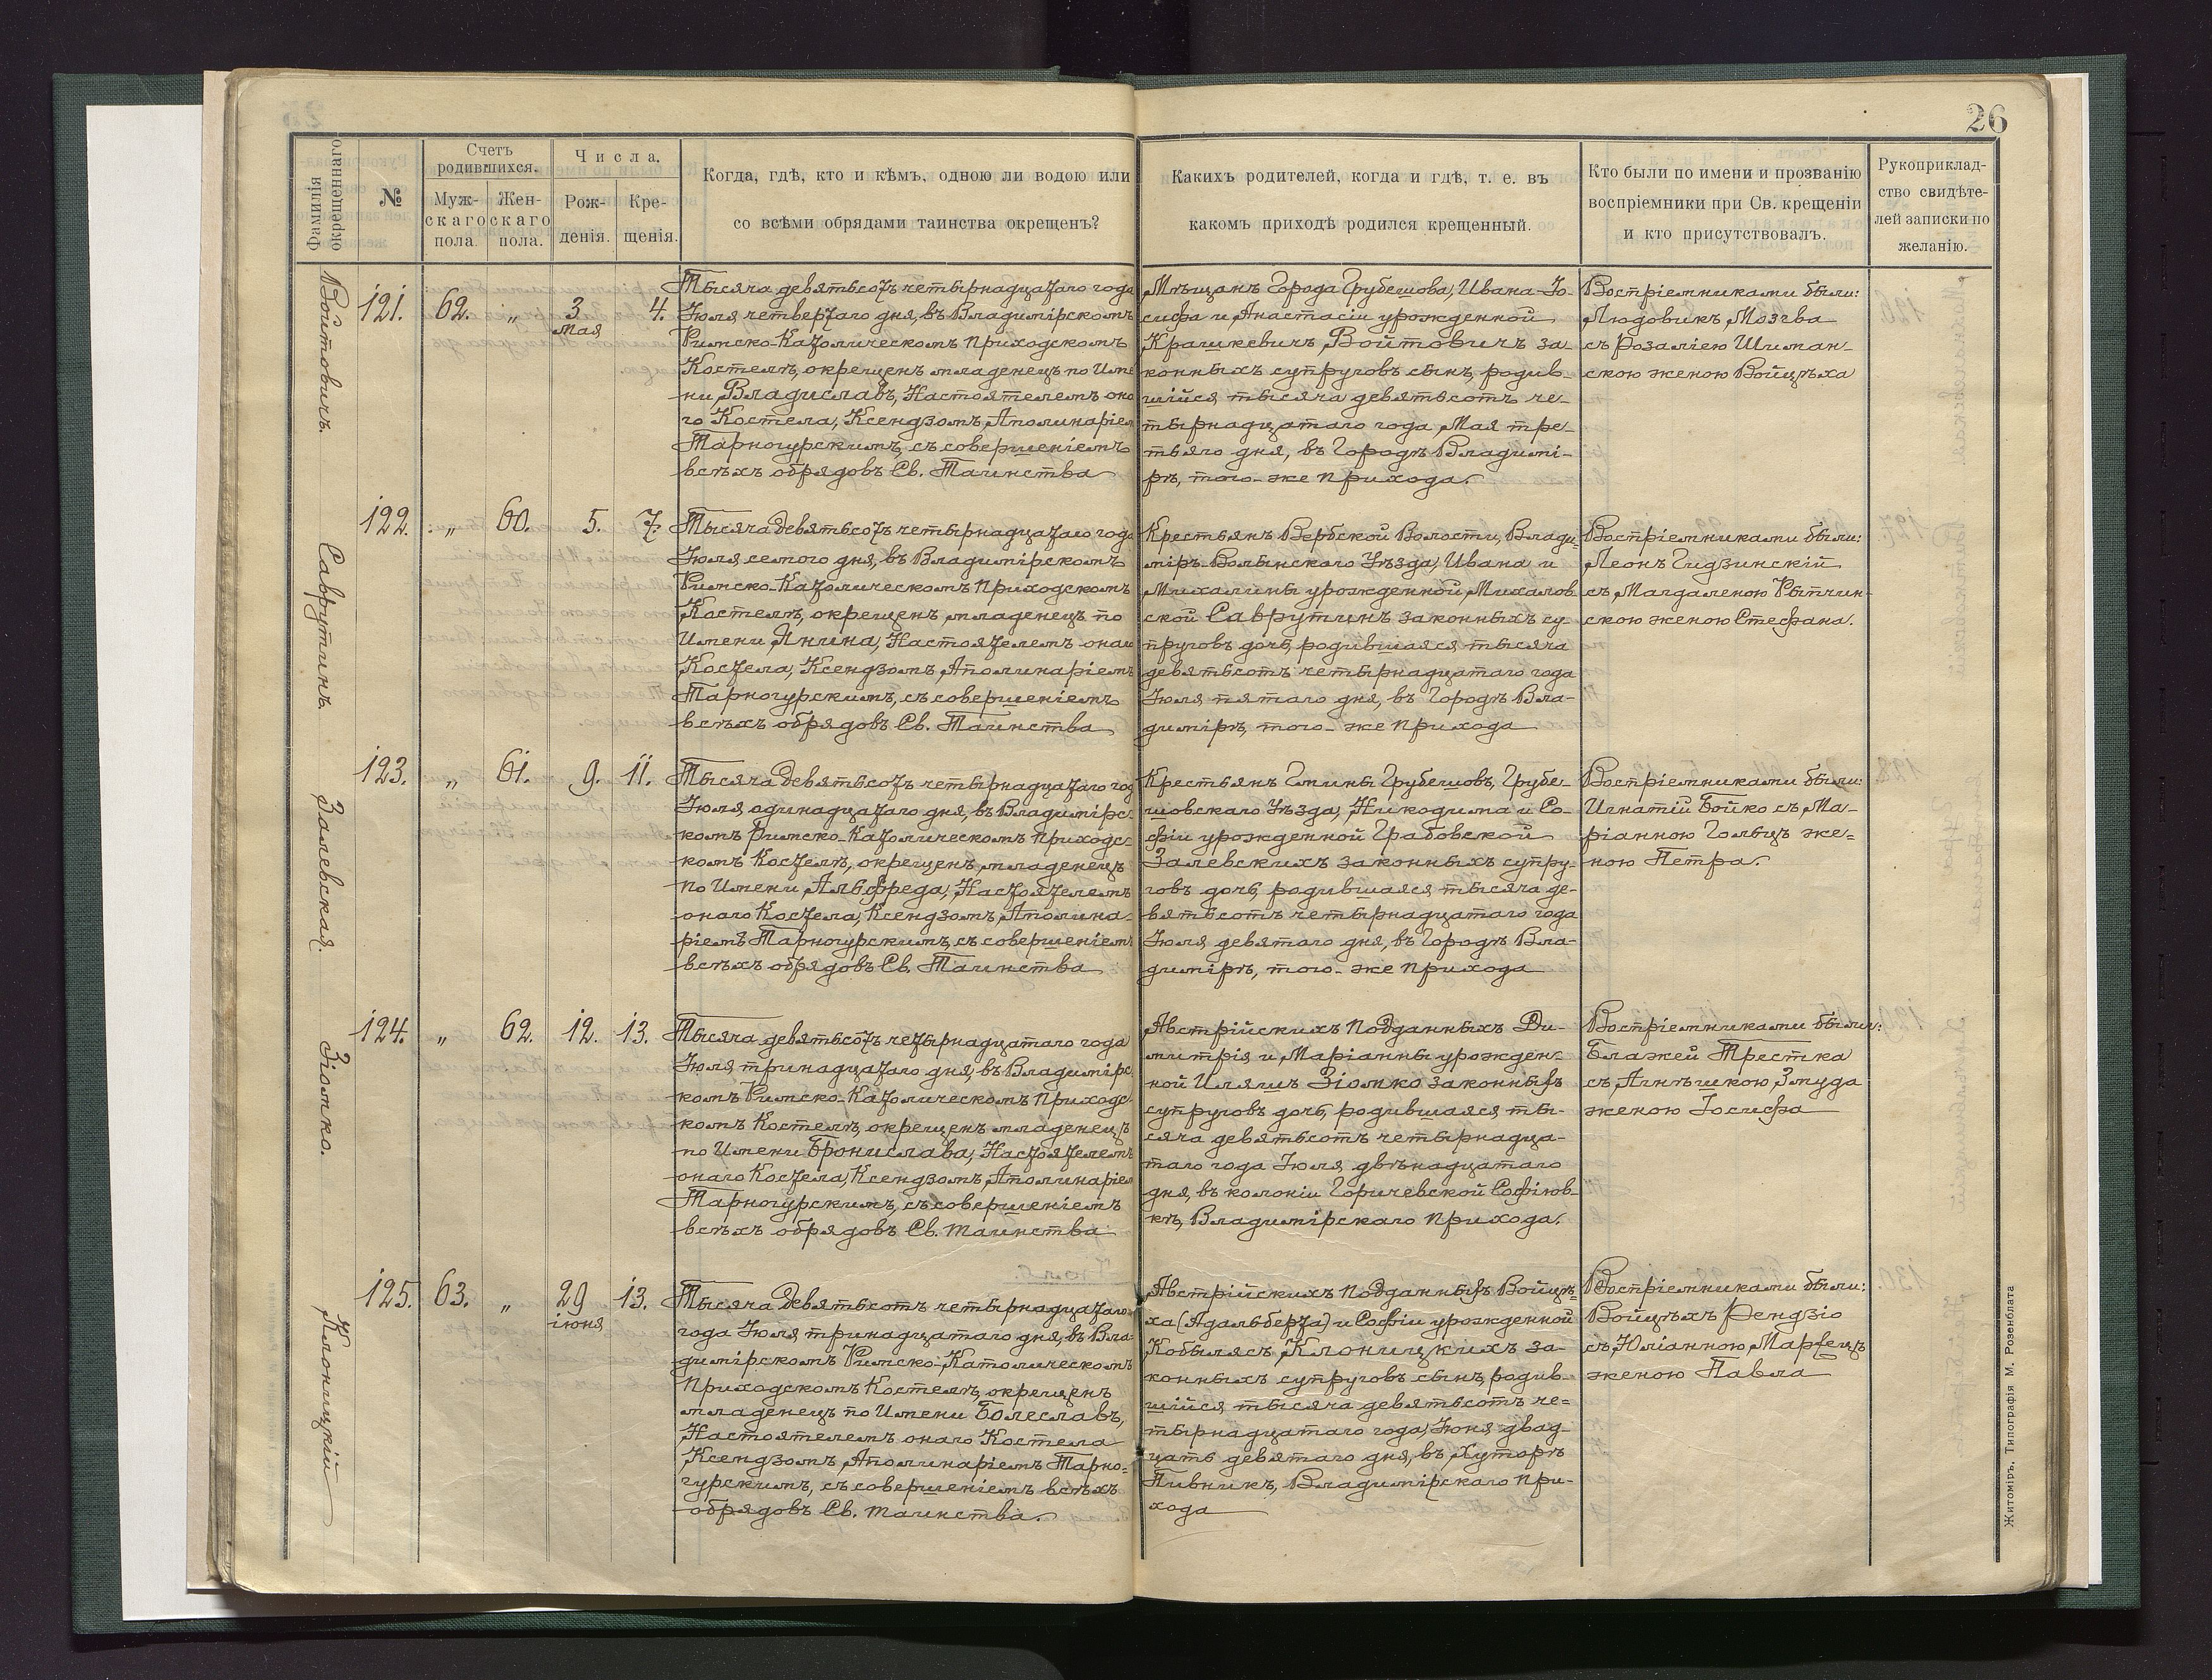 26
Фамилія
окрещеннаго
№
Счетъ
родившихся.
Муж-
скаго
пола.
Жен-
скаго
пола.
Числа,
Рож-
денія.
Кре-
щенія.
Когда, гдѣ, кто и кѣмъ, одною ли водою или
со всѣми обрядами таинства окрещенъ?
Какихъ родителей, когда и гдѣ, т. е. въ
какомъ приходѣ родился крещенный.
Кто были по имени и прозванію
воспріемники при Св. крещеніи
и кто присутствовалъ.
Рукоприклад-
ство свидѣте-
лей записки по
желанію.
Войтовичъ.
121.
62.
„
3
мая
4.
Тысяча девятьсотъ четырнадцатаго года
Іюля четвертаго дня, въ Владимірскомъ
Римско-Католическомъ Приходскомъ
Костелѣ, окрещенъ младенецъ по Име
ни Владиславъ, Настоятелемъ она
го Костела, Ксендзомъ Аполинаріем
Тарногурскимъ, съ совершеніемъ
всѣхъ обрядовъ Св. Таинства
Мѣщанъ Города Грубешова, Ивана-Іо-
сифа и Анастасіи урожденной
Крашкевичъ, Войтовичъ за-
конныхъ супруговъ сынъ, родив-
шійся тысяча девятьсотъ че-
тырнадцатаго года, Мая тре-
тьяго дня, въ Городѣ Владимі-
рѣ, того-же Прихода.
Воспріемниками были:
Людовикъ Мозгва
съ Розаліею Шиман-
скою женою Войцѣха
Саврутинъ.
122.
„
60.
5.
7.
Тысяча девятьсотъ четырнадцатаго года
Іюля семого дня, въ Владимірскомъ
Римско-Католическомъ Приходскомъ
Костелѣ, окрещенъ младенецъ по
Имени Янина, Настоятелемъ онаго
Костела, Ксендзомъ Аполинаріемъ
Тарногурскимъ, съ совершеніемъ
всѣхъ обрядовъ Св. Таинства
Крестьянъ Вербской Волости, Влади-
міръ-Волынскаго Уѣзда, Ивана и
Михалины урожденной Михалов-
ской Саврутинъ законныхъ су-
пруговъ дочь, родившаяся тысяча
девятьсотъ четырнадцатаго года
Іюля пятаго дня, въ Городѣ Вла-
димірѣ, того-же Прихода
Воспріемниками были:
Леонъ Гидзинскій
съ Магдаленою Рытчин-
скою женою Стефана.
Залевская.
123.
„
61.
9.
11.
Тысяча девятьсотъ четырнадцатаго год
Іюля одинадцатаго дня, въ Владимірс-
комъ Римско-Католическомъ Приходс-
комъ Костелѣ, окрещенъ младенецъ
по Имени Альфреда, Настоятелемъ
онаго Костела, Ксендзомъ Аполина-
ріемъ Тарногурскимъ, съ совершеніемъ
всѣхъ обрядовъ Св. Таинства
Крестьянъ Гмины Грубешовъ, Грубе-
шовскаго Уѣзда, Никодима и Со-
фіи урожденной Грабовской
Залевскихъ законныхъ супру-
говъ дочь, родившаяся тысяча де-
вятьсотъ четырнадцатаго года
Іюля девятаго дня, въ Городѣ Вла-
димірѣ, того-же Прихода
Воспріемниками были:
Игнатій Бойко съ Ма-
ріанною Гольцъ же-
ною Петра.
Зіомко.
124.
„
62.
12.
13.
Тысяча девятьсотъ четырнадцатаго года
Іюля тринадцатаго дня, въ Владимірс
комъ Римско-Католическомъ Приходс-
комъ Костелѣ, окрещенъ младенецъ
по Имени Брониславa, Настоятелемъ
онаго Костела, Ксендзомъ Аполинаріем
Тарногурскимъ, съ совершеніемъ
всѣхъ обрядовъ Св. таинства
Австрійскихъ Подданныхъ Ди-
митрія и Маріанны урожден-
ной Иляшъ Зіомко законныхъ
супруговъ дочь, родившаяся ты-
сяча девятьсотъ четырнадца-
таго года Іюля двѣнадцатаго
дня, въ колоніи Горичевской Софіюв-
кѣ, Владимірскаго Прихода.
Воспріемниками были:
Блажей Трестка
съ Агнѣшкою Змуда
женою Іосифа
Клоницкій
125.
63.
„
29
іюня
13.
Тысяча девятьсотъ четырнадцатаго
года Іюля тринадцатаго дня, въ Вла-
димірскомъ Римско-Католическомъ
Приходскомъ Костелѣ, окрещенъ
младенецъ по Имени Болеславъ,
Настоятелемъ онаго Костела
Ксендзомъ Аполинаріемъ Тарно-
гурскимъ, съ совершеніемъ всѣхъ
обрядовъ Св. таинства.
Австрійскихъ Подданныхъ Войцѣ-
ха (Адальберта) и Софіи урожденной
Кобылясъ, Клоницкихъ за-
конныхъ супруговъ сынъ, родив-
шійся тысяча девятьсотъ че-
тырнадцатаго года, Іюня двад-
цать девятаго дня, въ Хуторѣ
Пивникъ, Владимірскаго При-
хода
Воспріемниками были:
Войцѣхъ Рендзіо
съ Юліанною Мартецъ
женою Павла
Житоміръ, Типографія М. Розенблата